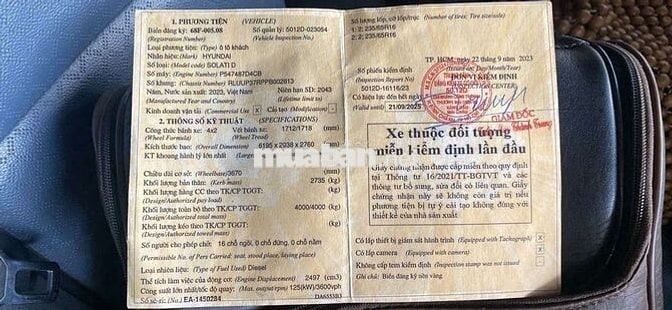 1. PHƯƠNG TIỆN (VEHICLE)
Biển đăng ký: 68F-005.08 Số quản lý: 5012D-023054
(Registration Number) (Vehicle Inspection No.)
Loại phương tiện: (Type) ô tô khách
Nhãn hiệu: (Mark) HYUNDAI
Số loại: (Model code) SOLATI D
Số máy: (Engine Number) P547487D4CB
Số khung: (Chassis Number)
Năm, Nước sản xuất: 2023, Việt Nam Niên hạn SD: 2043
(Manufactured Year and Country) (Lifetime limit to)
Kinh doanh vận tải (Commercial Use) X Cải tạo (Modification)
2. THÔNG SỐ KỸ THUẬT (SPECIFICATIONS)
Công thức bánh xe: 4x2 Vết bánh xe: 1712/1718 (mm)
(Wheel Formula) (Wheel Tread)
Kích thước bao: (Overall Dimension) 6195 x 2038 x 2760 (mm)
KT khoang hành lý lớn nhất (mm)
Chiều dài cơ sở: (Wheelbase) 3670 (mm)
Khối lượng bản thân: (Kerb mass) 2735 (kg)
Khối lượng hàng CC theo TK/CP TGGT: (kg)
(Design/Authorized pay load)
Khối lượng toàn bộ theo TK/CP TGGT: 4000/4000 (kg)
(Design/Authorized total mass)
Khối lượng kéo theo TK/CP TGGT: (kg)
(Design/Authorized towed mass)
Số người cho phép chở: 16 chỗ ngồi, 0 chỗ đứng, 0 chỗ nằm
(Permissible No. of Pers Carried: seat, stood place, laying place)
Loại nhiên liệu: (Type of Fuel Used) Diesel
Thể tích làm việc của động cơ: (Engine Displacement) 2497 (cm3)
Công suất lớn nhất/tốc độ quay: (Max. output/rpm) 125(kW)/3600vph
Số sê-ri: (No.) EA-1450284
Số lượng lốp, cỡ lốp/trục: (Number of tires; Tire size/axle)
1: 2; 235/65R16
2: 2; 235/65R16
TP. HCM, ngày 22 tháng 9 năm 2023
(Issued on: Day/Month/Year)
Số phiếu kiểm định ĐƠN VỊ KIỂM ĐỊNH
(Inspection Report No) (INSPECTION CENTER)
5012D-16116/23
Có hiệu lực đến hết ngày
21/09/2025
GIÁM ĐỐC
Xe thuộc đối tượng
miễn kiểm định lần đầu
Giấy chứng nhận được cấp miễn theo quy định
tại Thông tư 16/2021/TT-BGTVT và các
thông tư bổ sung, sửa đổi có liên quan. Giấy
chứng nhận này sẽ không còn giá trị nếu
phương tiện bị tự ý cải tạo không đúng với
thiết kế của nhà sản xuất
Có lắp thiết bị giám sát hành trình (Equipped with Tachograph) X
Có lắp camera (Equipped with camera) X
Không cấp tem kiểm định (Inspection stamp was not issued)
Ghi chú: Biển đăng ký nền vàng